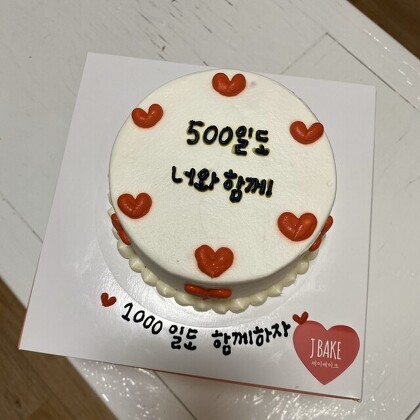 500일도
너와 함께!
1000일도 함께하자
J BAKE
제이베이크